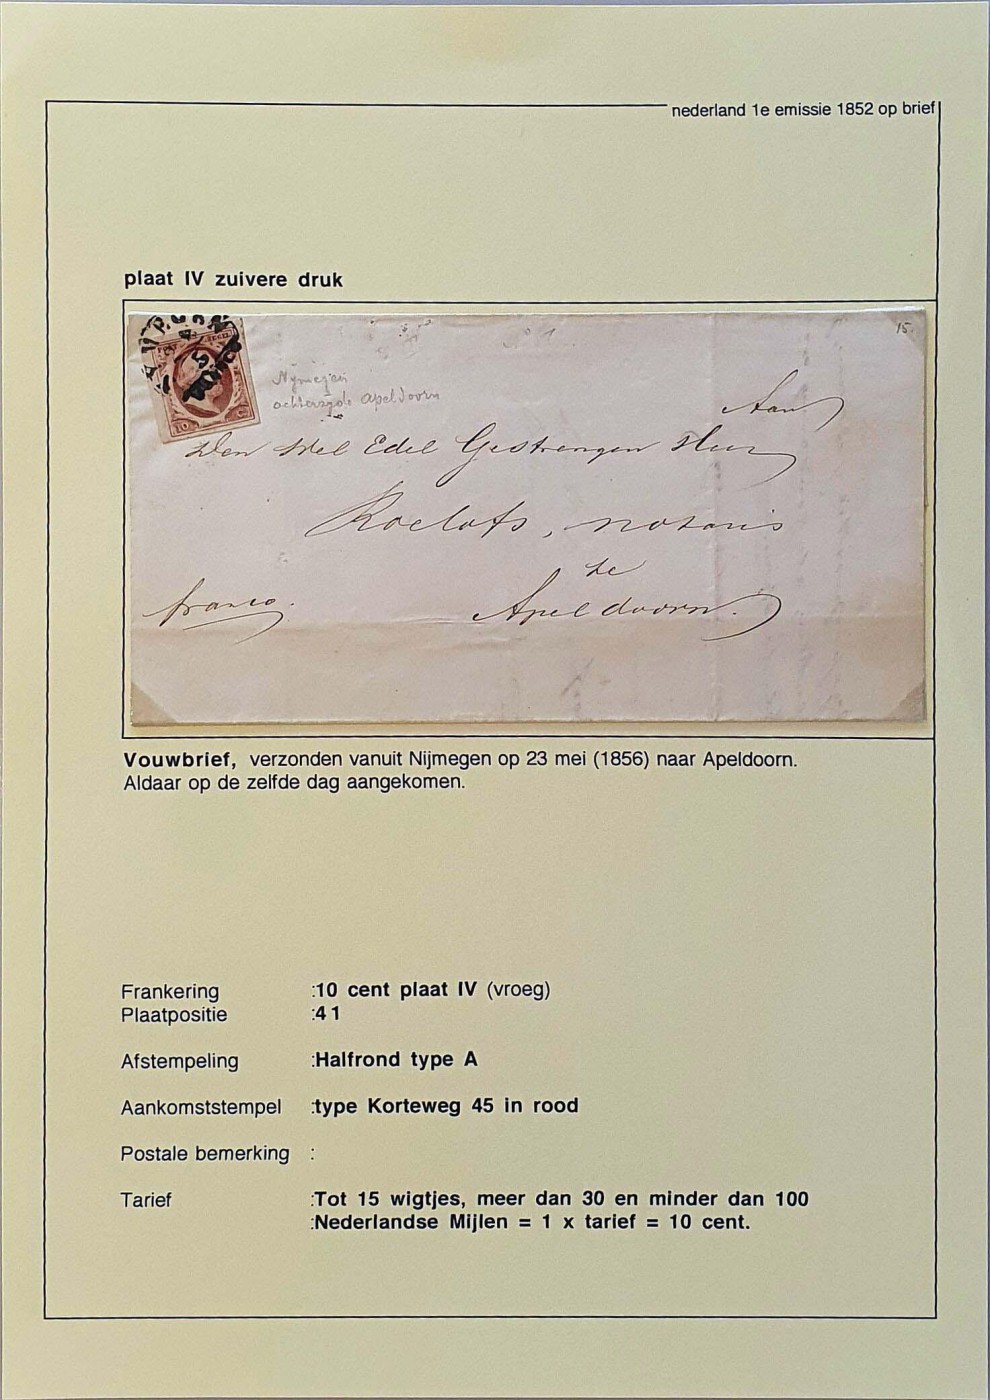 nederland 1e emissie 1852 op brief
plaat IV zuivere druk
15.
Nymegen
achterzyde apeldoorn
Aan
Den Wel Edel Gestrengen Heer
Roelofs, notaris
te
Apeldoorn.
franco.
Vouwbrief, verzonden vanuit Nijmegen op 23 mei (1856) naar Apeldoorn.
Aldaar op de zelfde dag aangekomen.
Frankering :10 cent plaat IV (vroeg)
Plaatpositie :41
Afstempeling :Halfrond type A
Aankomststempel :type Korteweg 45 in rood
Postale bemerking :
Tarief :Tot 15 wigtjes, meer dan 30 en minder dan 100
:Nederlandse Mijlen = 1 x tarief = 10 cent.